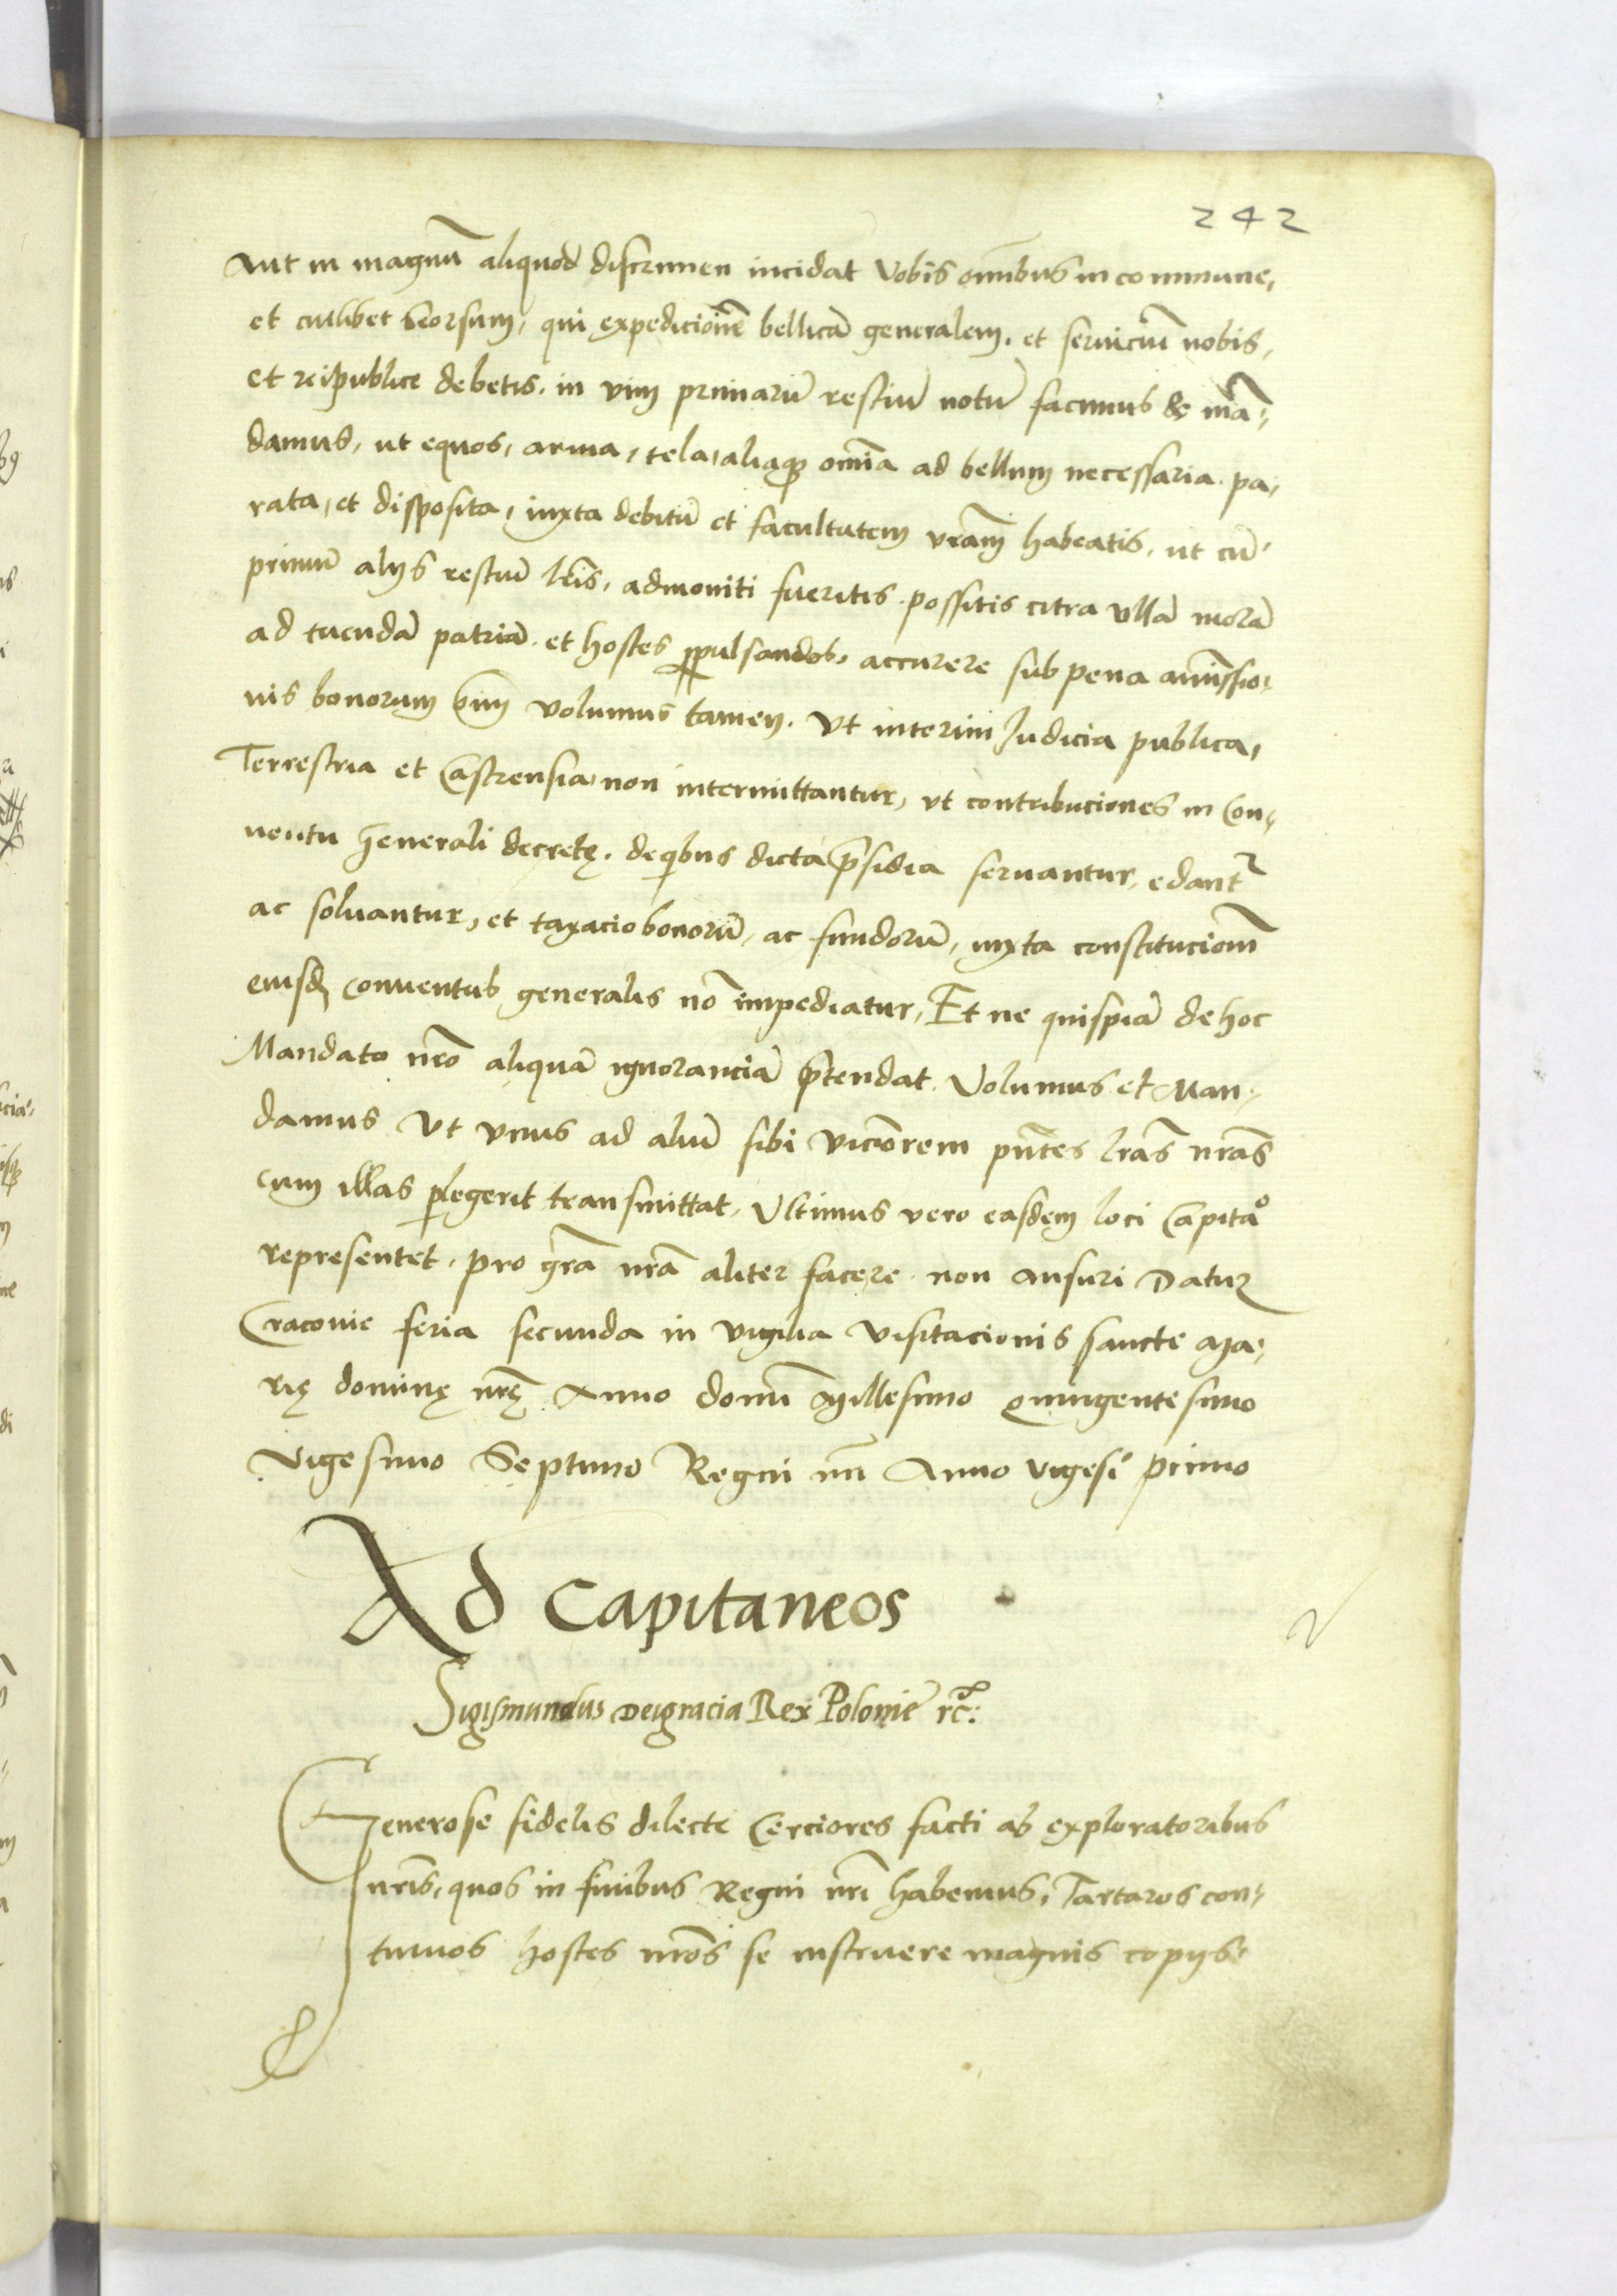 242
Aut in magnū aliquod discrimen incidat Vobis om̄ibus in commune,
et cuilibet seorsum, qui expedicionē bellicā generalem, et seruiciū nobis,
et reipublice debetis, in vim primarū restiū notū facimus & mā-
damus, ut equos, arma, tela, aliaq; om̄ia ad bellum necessaria pa-
rata, et disposita, iuxta debitū et facultatem vr̄am habeatis, ut cū
primū alijs restiū lr̄is, admoniti fueritis possitis citra ullā morā
ad tuendā patriā et hostes ꝓpulsandos, accurere sub pena amissio-
nis bonorum volumus tamen. Vt interim Judicia publica,
Terrestria et Castrensia non intermittantur, vt contribuciones in Con-
uentu generali decretę, de quibus dicta p̄sidia seruantur, edant~
ac soluantur, et taxacio bonorū, ac fundorū, iuxta constitucionē
eiusd conuentus generalis nō impediatur, Et ne quispiā de hoc
Mandato nr̄o aliquā ignoranciā p̄tendat. Volumus et Man-
damus Vt vnus ad aliū sibi viciniorem pn̄tes lr̄as nr̄as
cum illas plegerit transmittat, Vltimus vero easdem loci Capita°
representet, pro gr̄a nr̄a aliter facere non ausuri Datum
Cracovie feria secunda in vigilia Visitacionis sancte Ma-
rię dominę nr̄ę Anno domī Millesimo Quingentesimo
Vigesimo Septimo Regni nr̄i Anno vigesi° primo
Ad Capitaneos
Sigismundus Dei gracia Rex Polonie rc̄:
Generose fidelis dilecte Cerciores facti ab exploratoribus
nr̄is, quos in finibus Regni nr̄i habemus, Tartaros con-
tinuos hostes nr̄os se instruere magnis copijs